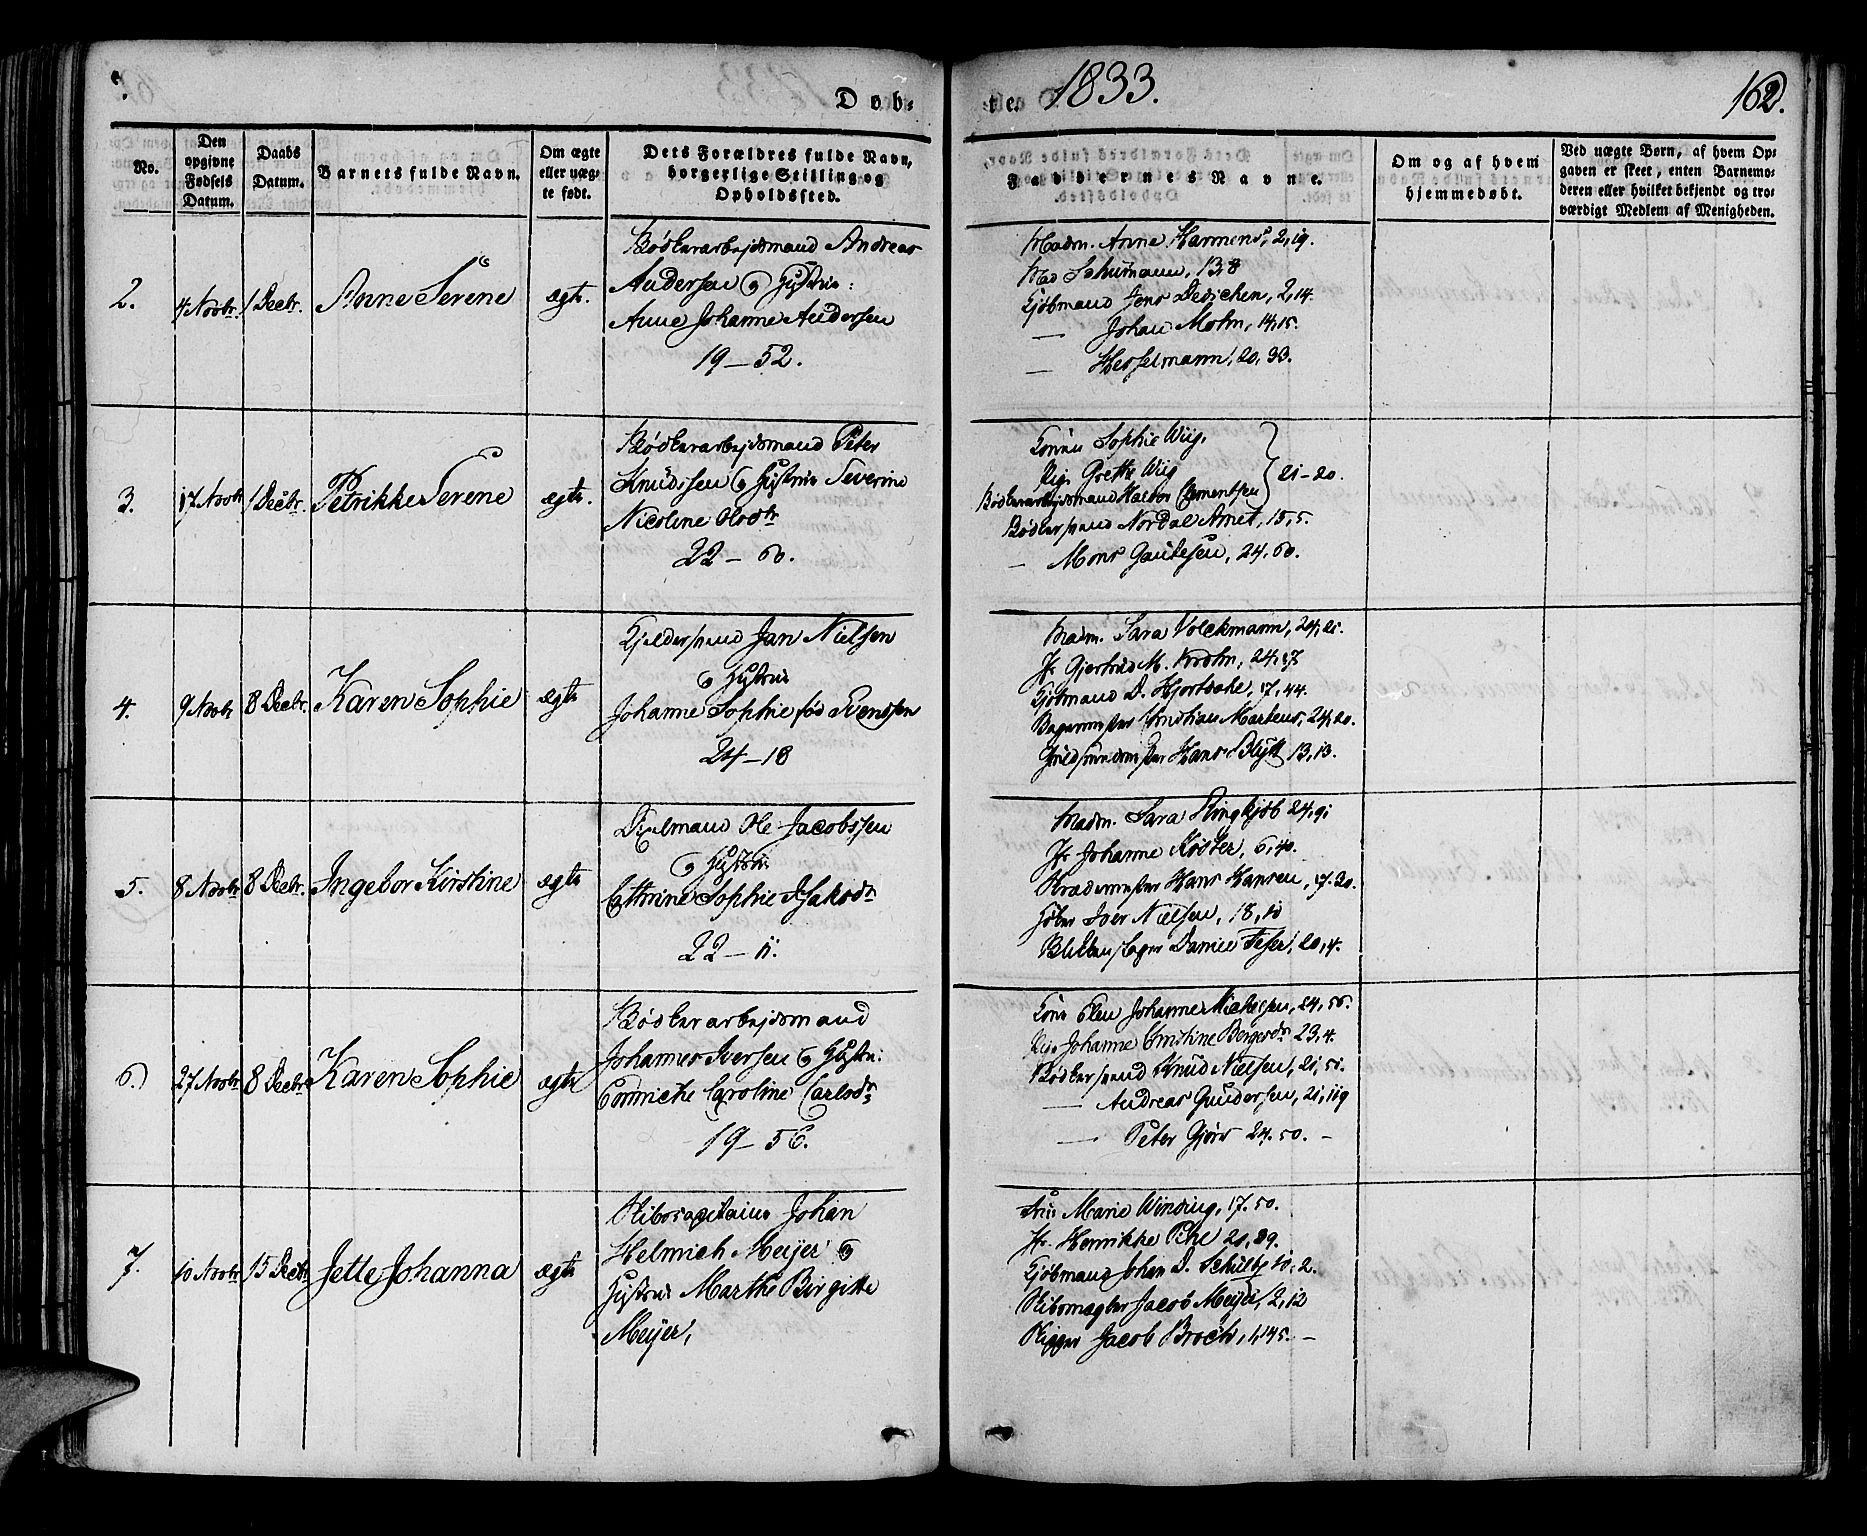 Døb-
te. 1833.
162.
No.
Den opgivne Fødsels Datum.
Daabs Datum.
Barnets fulde Navn.
Om ægte eller uægte født.
Dets Forældres fulde Navn, borgerlige Stilling og Opholdssted.
Faddernes Navne.
Om og af hvem hjemmedøbt.
Ved uægte Børn, af hvem Opgaven er skeet, enten Barnemoderen eller hvilket bekjendt og troværdigt Medlem af Menigheden.
2.
4 Novbr.
1 Decbr.
Anne Serene
ægte.
Bødkerarbejdsmand Andreas
Andersen og Hustrue:
Anne Johanne Andersen
19 – 52.
Madm. Anne Harmens, 2,19.
Mad Schumann, 13,8
Kjøbmand Jens Dedichen, 2,14.
— Johan Mohn, 14,15.
— Hesselmann, 20,33.
3.
17 Novbr
1 Decbr.
Petrikke Serene
ægte.
Bødkerarbejdsmand Peter
Knudssen og Hustrue Severine
Nicoline Olsdtr
22 – 60.
Konen Sophie Wiig,
Pige Grethe Wiig
Bødkerarbejdsmand Halvor Clementsen
21–20.
Bødkersvend Nordal Arnet, 15,5.
— Mons Gautesen, 24,60.
4.
9 Novbr
8 Decbr.
Karen Sophie
ægte
svend Jan Nielsen
og Hustrue
Johanne Sophie fød Svendsen
24–18
Madm. Sara Volckmann, 24,21.
Jfr Gjertrud M. Krohn, 24,17
Kjøbmand D. Hjortdahl, 17,44.
Bagermester Christian Martens, 24,20.
Guldsmedmester Hans Blytt 13,13.
5.
8 Novbr
8 Decbr.
Ingebor Kirstine
ægte
Ole Jacobssen
og Hustrue
Cathrine Sophie Isaksdtr
22 – 11.
Madm. Sara Ringkjøb 24,91
Jfr Johanne Köster, 6,40.
Hans Hansen, 17.30.
Iver Nielsen, 18,10
Blikkenslager Daniel Feser, 20,4.
6.
27 Novbr
8 Decbr
Karen Sophie
ægte
Bødkerarbejdsmand
Johannes Iversen og Hustrue:
Caroline Carlsdr.
19 – 56.
Kone Elen Johanne Michelsen, 24,56.
Pige Johanne Christine Bergersdr 23,4.
Bødkersvend Knud Nielsen, 21,51.
— Andreas Gundersen, 21,119
— Peter Gjørs 24.50. –
7.
10 Novbr
15 Decbr
Jette Johanna
ægte
Skibscapitaine Johan
Helmich Meÿer og
Hustrue Marthe Birgitte
Meÿer,
Frue Marie Winding, 17.50.
Jfr Henrikke Pihl 21,29.
Kjøbmand Johan D. Schulby 10,2.
Skibsmægler Jacob Meÿer, 2,12
Skipper Jacob Broch, 1,145. –